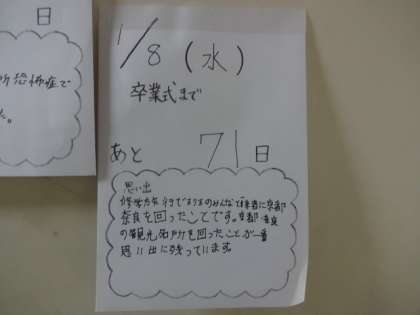 日
所恐怖症で
。
1/8(水)
卒業式まで
あと 71日
思い出
修学旅行で3年3のみんなで
奈良を回ったことです。京都・奈良
の観光名所を回ったことが一番
思い出に残っています